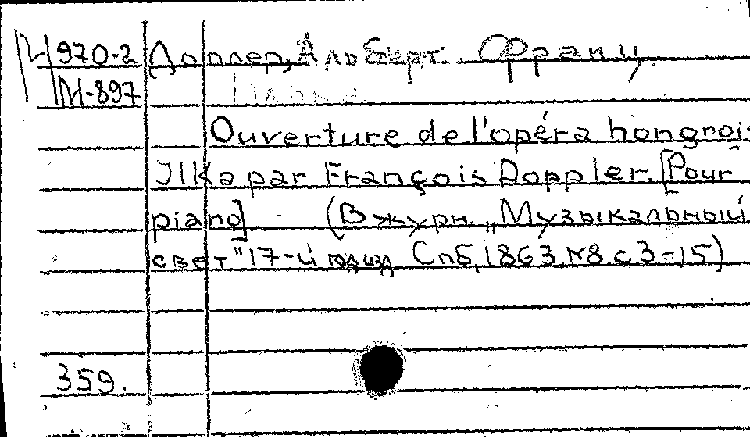 И970-2 Доплер, Альберт Франц.
М-897
Ouverture de l'opéra hongrois
Ilka par François Doppler. [Pour
piano] (В журн. „Музыкальный
свет" 17-й год изд. Спб, 1863, №8 с 3-15)
359.